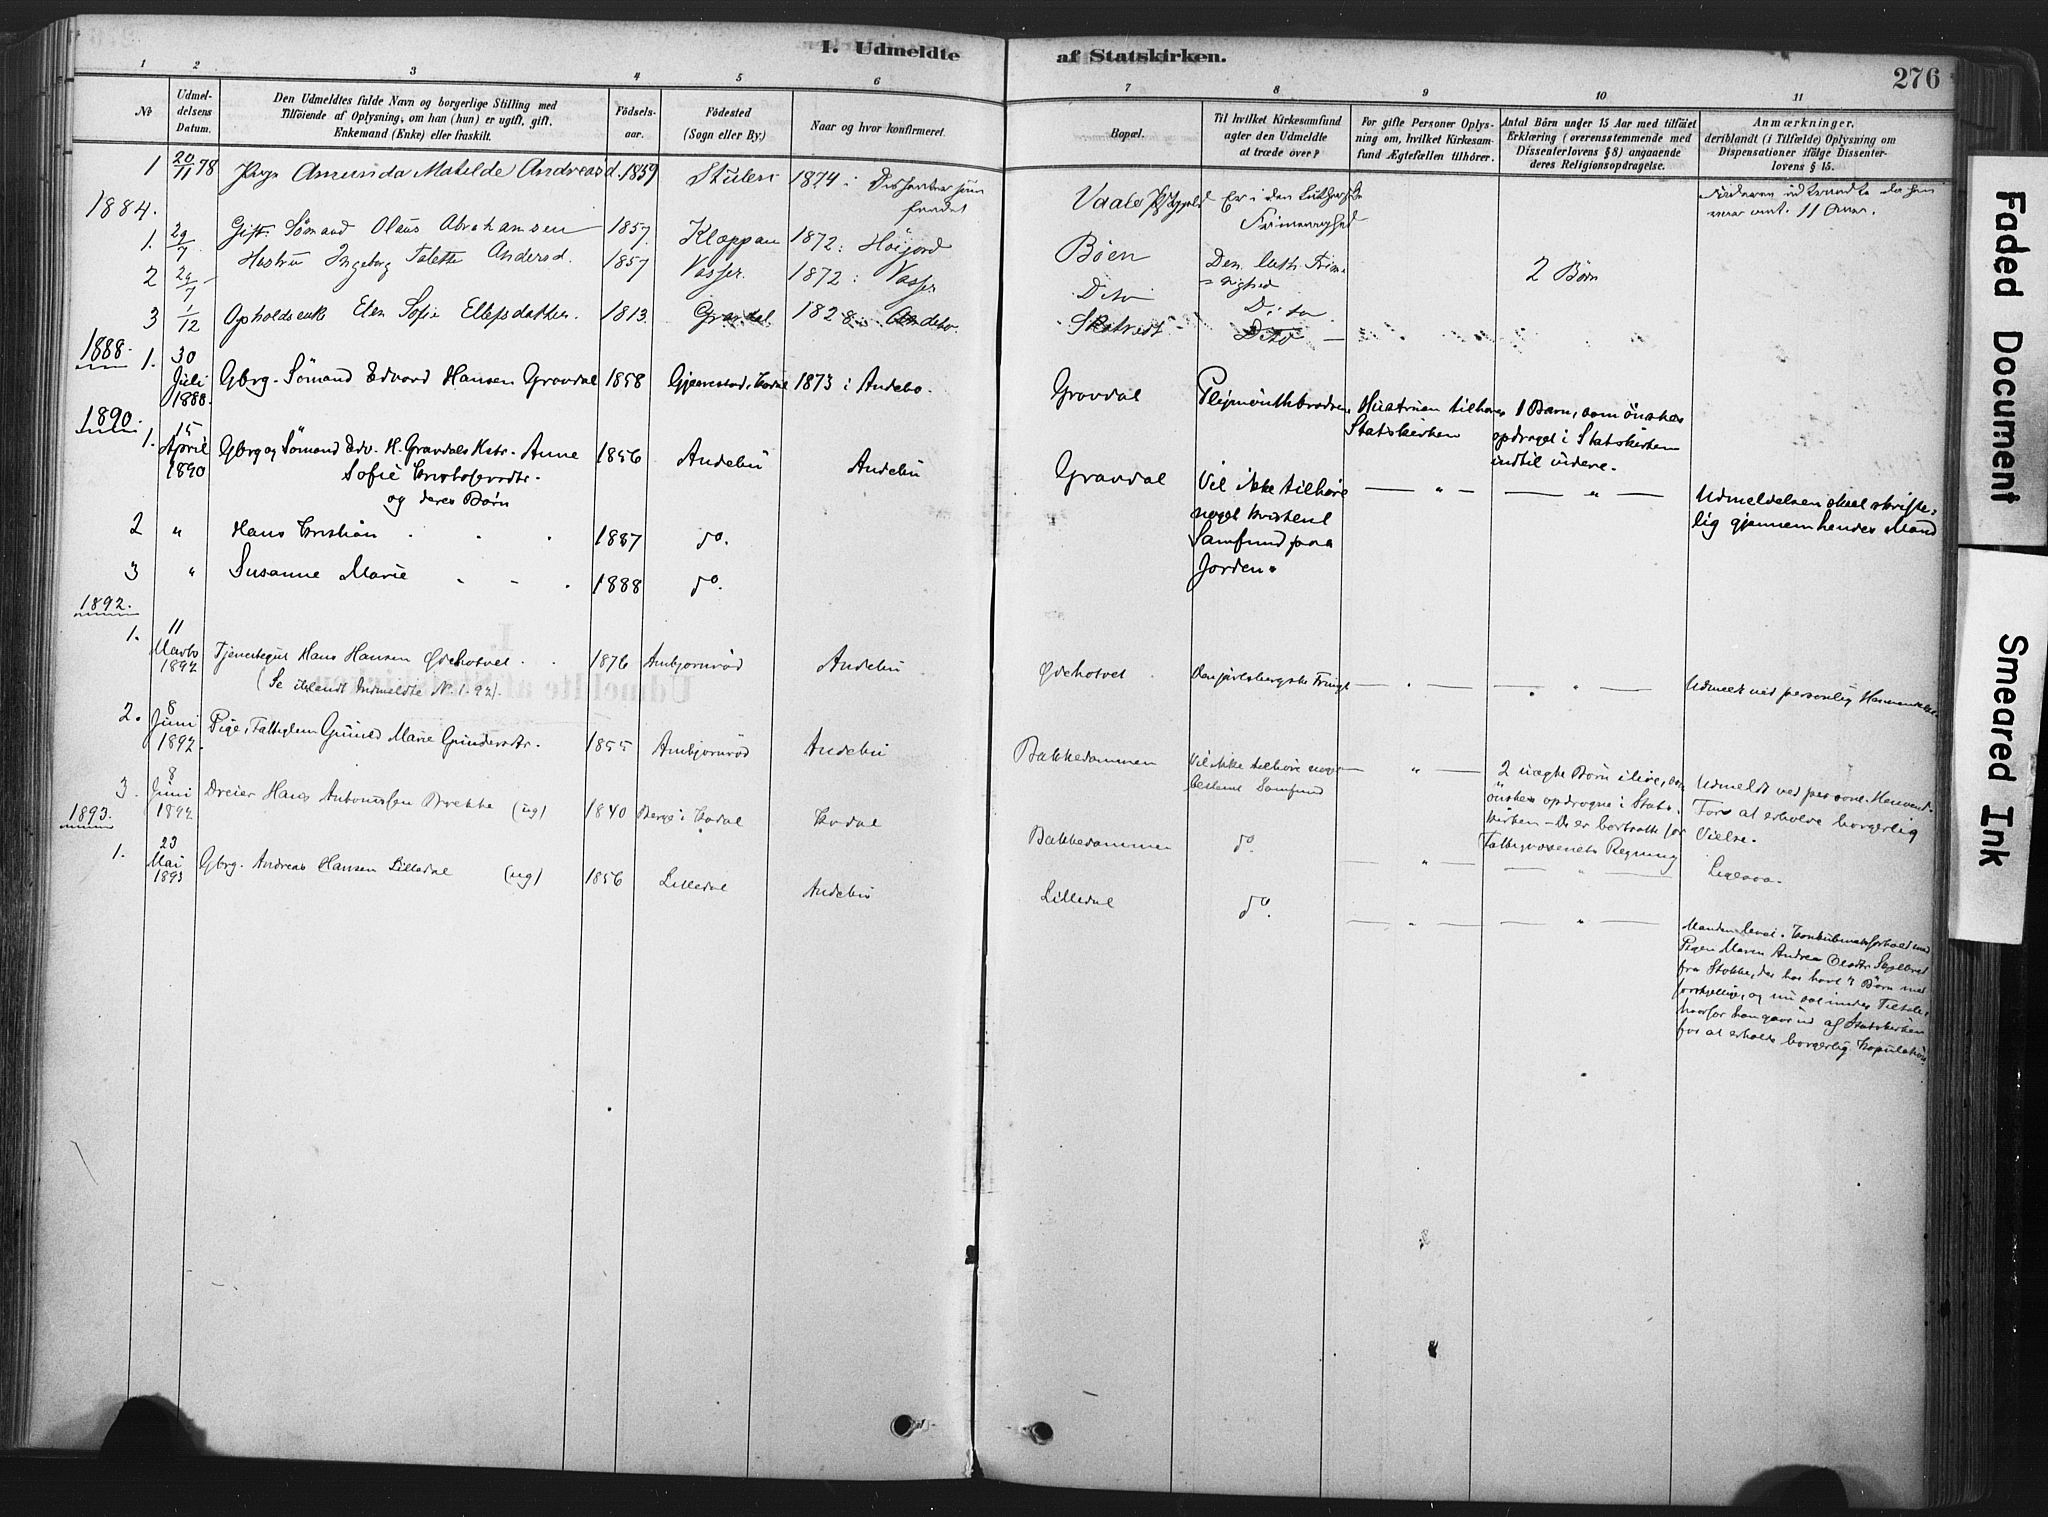 I. Udmeldte af Statskirken.
276
1 2 3 4 5 6 7 8 9 10 11
No
Udmeldelsens Datum.
Den Udmeldtes fulde Navn og borgerlige Stilling med
Tilföiende af Oplysning, om han (hun) er ugift, gift,
Enkemand (Enke) eller fraskilt.
Födselsaar.
Födested
(Sogn eller By.)
Naar og hvor konfirmeret.
Bopæl.
Til hvilket Kirkesamfund
agter den Udmeldte
at træde over?
For gifte Personer Oplysning om, hvilket Kirkesamfund Ægtefællen tilhörer.
Antal Börn under 15 Aar med tilföiet
Erklæring (overensstemmende med
Dissenterlovens § 8) angaaende
deres Religionsopdragelse.
Anmærkninger,
deriblandt (i Tilfælde) Oplysning om
Dispensationer ifölge Dissenterlovens § 15.
1 20/11 78 Pige Amunda Matilde Andreasd. 1859 Skulen 1874 i Dissentersamfundet
Vaale Er i den Lutherske Frimenighed
11 Aar.
1884.
1. 29/7 Gift Sömand Olaus Abrahamsen 1857. Klæppan 1872: Höijord Böen Den luth. Frimenighed 2 Börn
2 29/7 Hustru Ingeborg Talette Andersd. 1857 Vasser. 1872: Vasser Dito Dito
3 1/12 Opholdsenke Elen Sofie Ellefsdatter. 1813. Gravdal 1828 Andebo. Skatvedt Dito
1888.
1. 30 Juli 1888. Gbrg. Sömand Edvard Hansen Gravdal 1858 Gjærestad, Kodal 1873 i Andebo. Gravdal Plejmouthbrödrene Hustruen tilhører Statskirken 1 Barn, som önskes
opdraget i Statskirken
indtil videre.
1890.
1. 15 April 1890 Gbrg og Sömand Edv. H. Gravdals Hstr. Anne
Sofie Kristofersdtr.
og deres Börn
1856 Andebu Andebu Gravdal
Vil ikke tilhöre
noget kristent
Samfund paa
Jorden.
Udmeldelsen skeet skriftelig gjennem hendes Mand
2 " Hans Kristian 1887 do.
3 " Susanne Marie 1888 do.
1892.
1. 11 Marts 1892 Tjenestegut Hans Hansen Ødehotvet 1876 Ambjørnrød Andebu
(Se iblandt Indmeldte N. 1. 92).
Ødehotvet Den jarlsbergske Frimgh. Udmeldt ved personlig Henvendelse.
2. 8 Juni 1892. Pige, Fattiglem Gunild Marie Gundersdtr. 1855 Ambjørnrød Andebu
Bakkedammen Vil ikke tilhöre noget
bestemt Samfund
2 uægte Börn i live, som
önskes opdragne i Statskirken - De er bortsatte for
Fattigvæsenets Regning
Udmeldt ved personl. Henvend.
For at erholde borgerlig
Vielse.
3. 8 Juni 1892 Dreier Hans Antonissen Brekke (ug) 1840 Berge i Kodal Kodal Bakkedammen do. Ligesaa.
1893.
1. 23 Mai 1893 Gbrg. Andreas Hansen Lilledal (ug) 1856 Lilledal Andebu Lilledal do.
Manden lever i Konkubinatsforhold med
Pigen Maren Andrea Olsdtr
fra Stokke, der har havt 4 Börn med
forskjellige, og nu sat under Tiltale,
hvorfor han gaar ud af Statskirken
for at erholde borgerlig Kopulation.
Faded Document
Smeared Ink